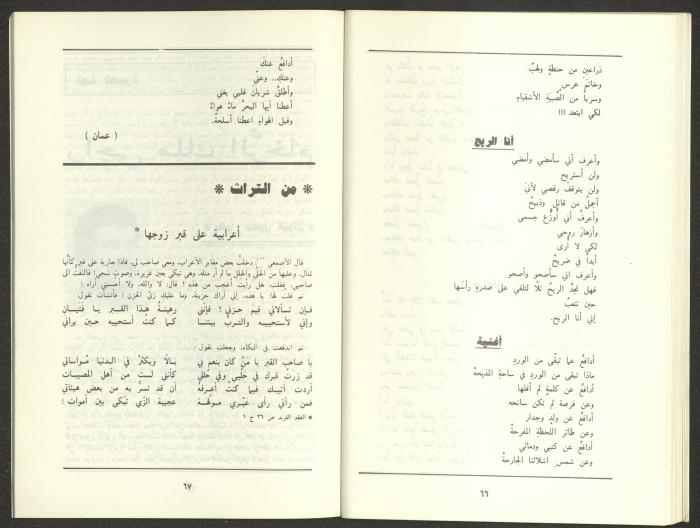 ذراعين من حنطةٍ ولهبْ
وخاتمَ عرسٍ
وسرباً من الصِّبيَةِ الأشقياءِ
لكي ابتعد !!!
أنا الريح
وأعرف أني سأمضي وأمضي
ولن أستريح
ولن يتوقف رقصي لأنيَ
أجملُ من قاتلٍ وذبيحْ
وأعرفُ أني أوزّع جسمي
وأزهارَ روحي
لكي لا أُرى
أبداً في ضريحْ
وأعرف اني سأصحو وأصحو
فهل تجدُ الريحُ تلًّا لتلقي على صدرهِ رأسَها
حين تتعبْ
إني أنا الريح.
أغنية
أدافعُ عما تبقّى من الوردِ
ماذا تبقى من الوردِ في ساحةِ المذبحةْ
أدافعُ عن كلمةٍ لم أقلها
وعن فرصة لم تكن سانحه
أدافعُ عن ولدٍ وجدار
وعن طائر اللحظةِ المفرحةْ
أدافعُ عن كتبي ودمائي
وعن شمسِ اشلائنا الجارحةْ
٦٦
أدافعُ عنكَ
وعنكِ.. وعنّي
وأطلقُ شريانَ قلبي يغني
أعطنا أيها البحرُ ماءً هواءً
وقبل الهواءِ اعطنا أسلحةْ.
( عمان )
* من التراث *
أعرابية على قبر زوجها *
قال الأصمعي : دخلتُ بعض مقابر الأعراب، ومعي صاحب لي، فاذا جارية على قبر كأنّها
تمثال، وعليها من الحَلْي والحُلل ما لم أر مثله، وهي تبكي بعين غزيرة، وصوتٍ شجي؛ فالتفتُّ الى
صاحبي، فقلت: هل رأيت أعجب من هذه ؟ قال: لا والله، ولا أحسبني أراه !
ثم قلت لها: يا هذه، إني أراك حزينة، وما عليكِ زيّ الحزن ! فأنشأت تقول:
فـإن تسألاني فيمَ حزني؟ فإنّني رهينةُ هـذا القبر يـا فَتَيـان
وإني لأستحييـه والتـرب بيننـا كمـا كنتُ أستحييه حـين يراني
ثم اندفعت في البكاء، وجعلت تقول:
يا صاحبَ القبر يا مَنْ كان ينعم بي بـالًا ويكثرُ في الـدنيا مُـواساتي
قد زرتُ قبرك في حَلْيي وفي حُلَلي كأنني لستُ من أهل المصيبـات
أردت آتيـك فيما كنتُ أعـرفُه أن قد تُسرّ به من بعض هيئاتي
فمن رأني رأى عَبْـرى مـولّهـة عجيبة الزّي تبكي بين أمواتِ !
* العقد الفريد ص ٣٦ ج ١
٦٧